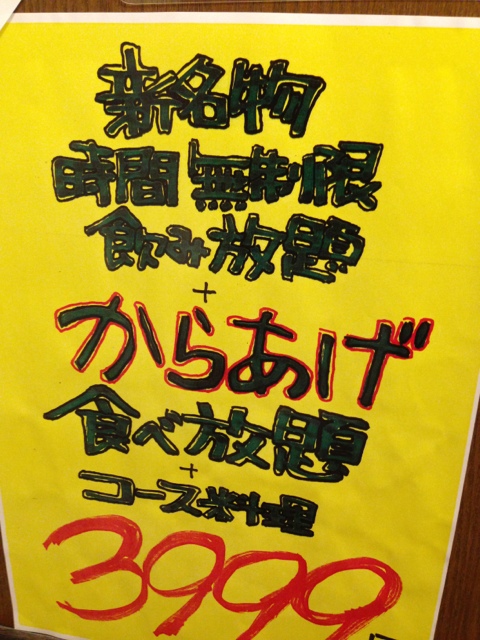 新名物
時間無制限
飲み放題
+
からあげ
食べ放題
+
コース料理
3999